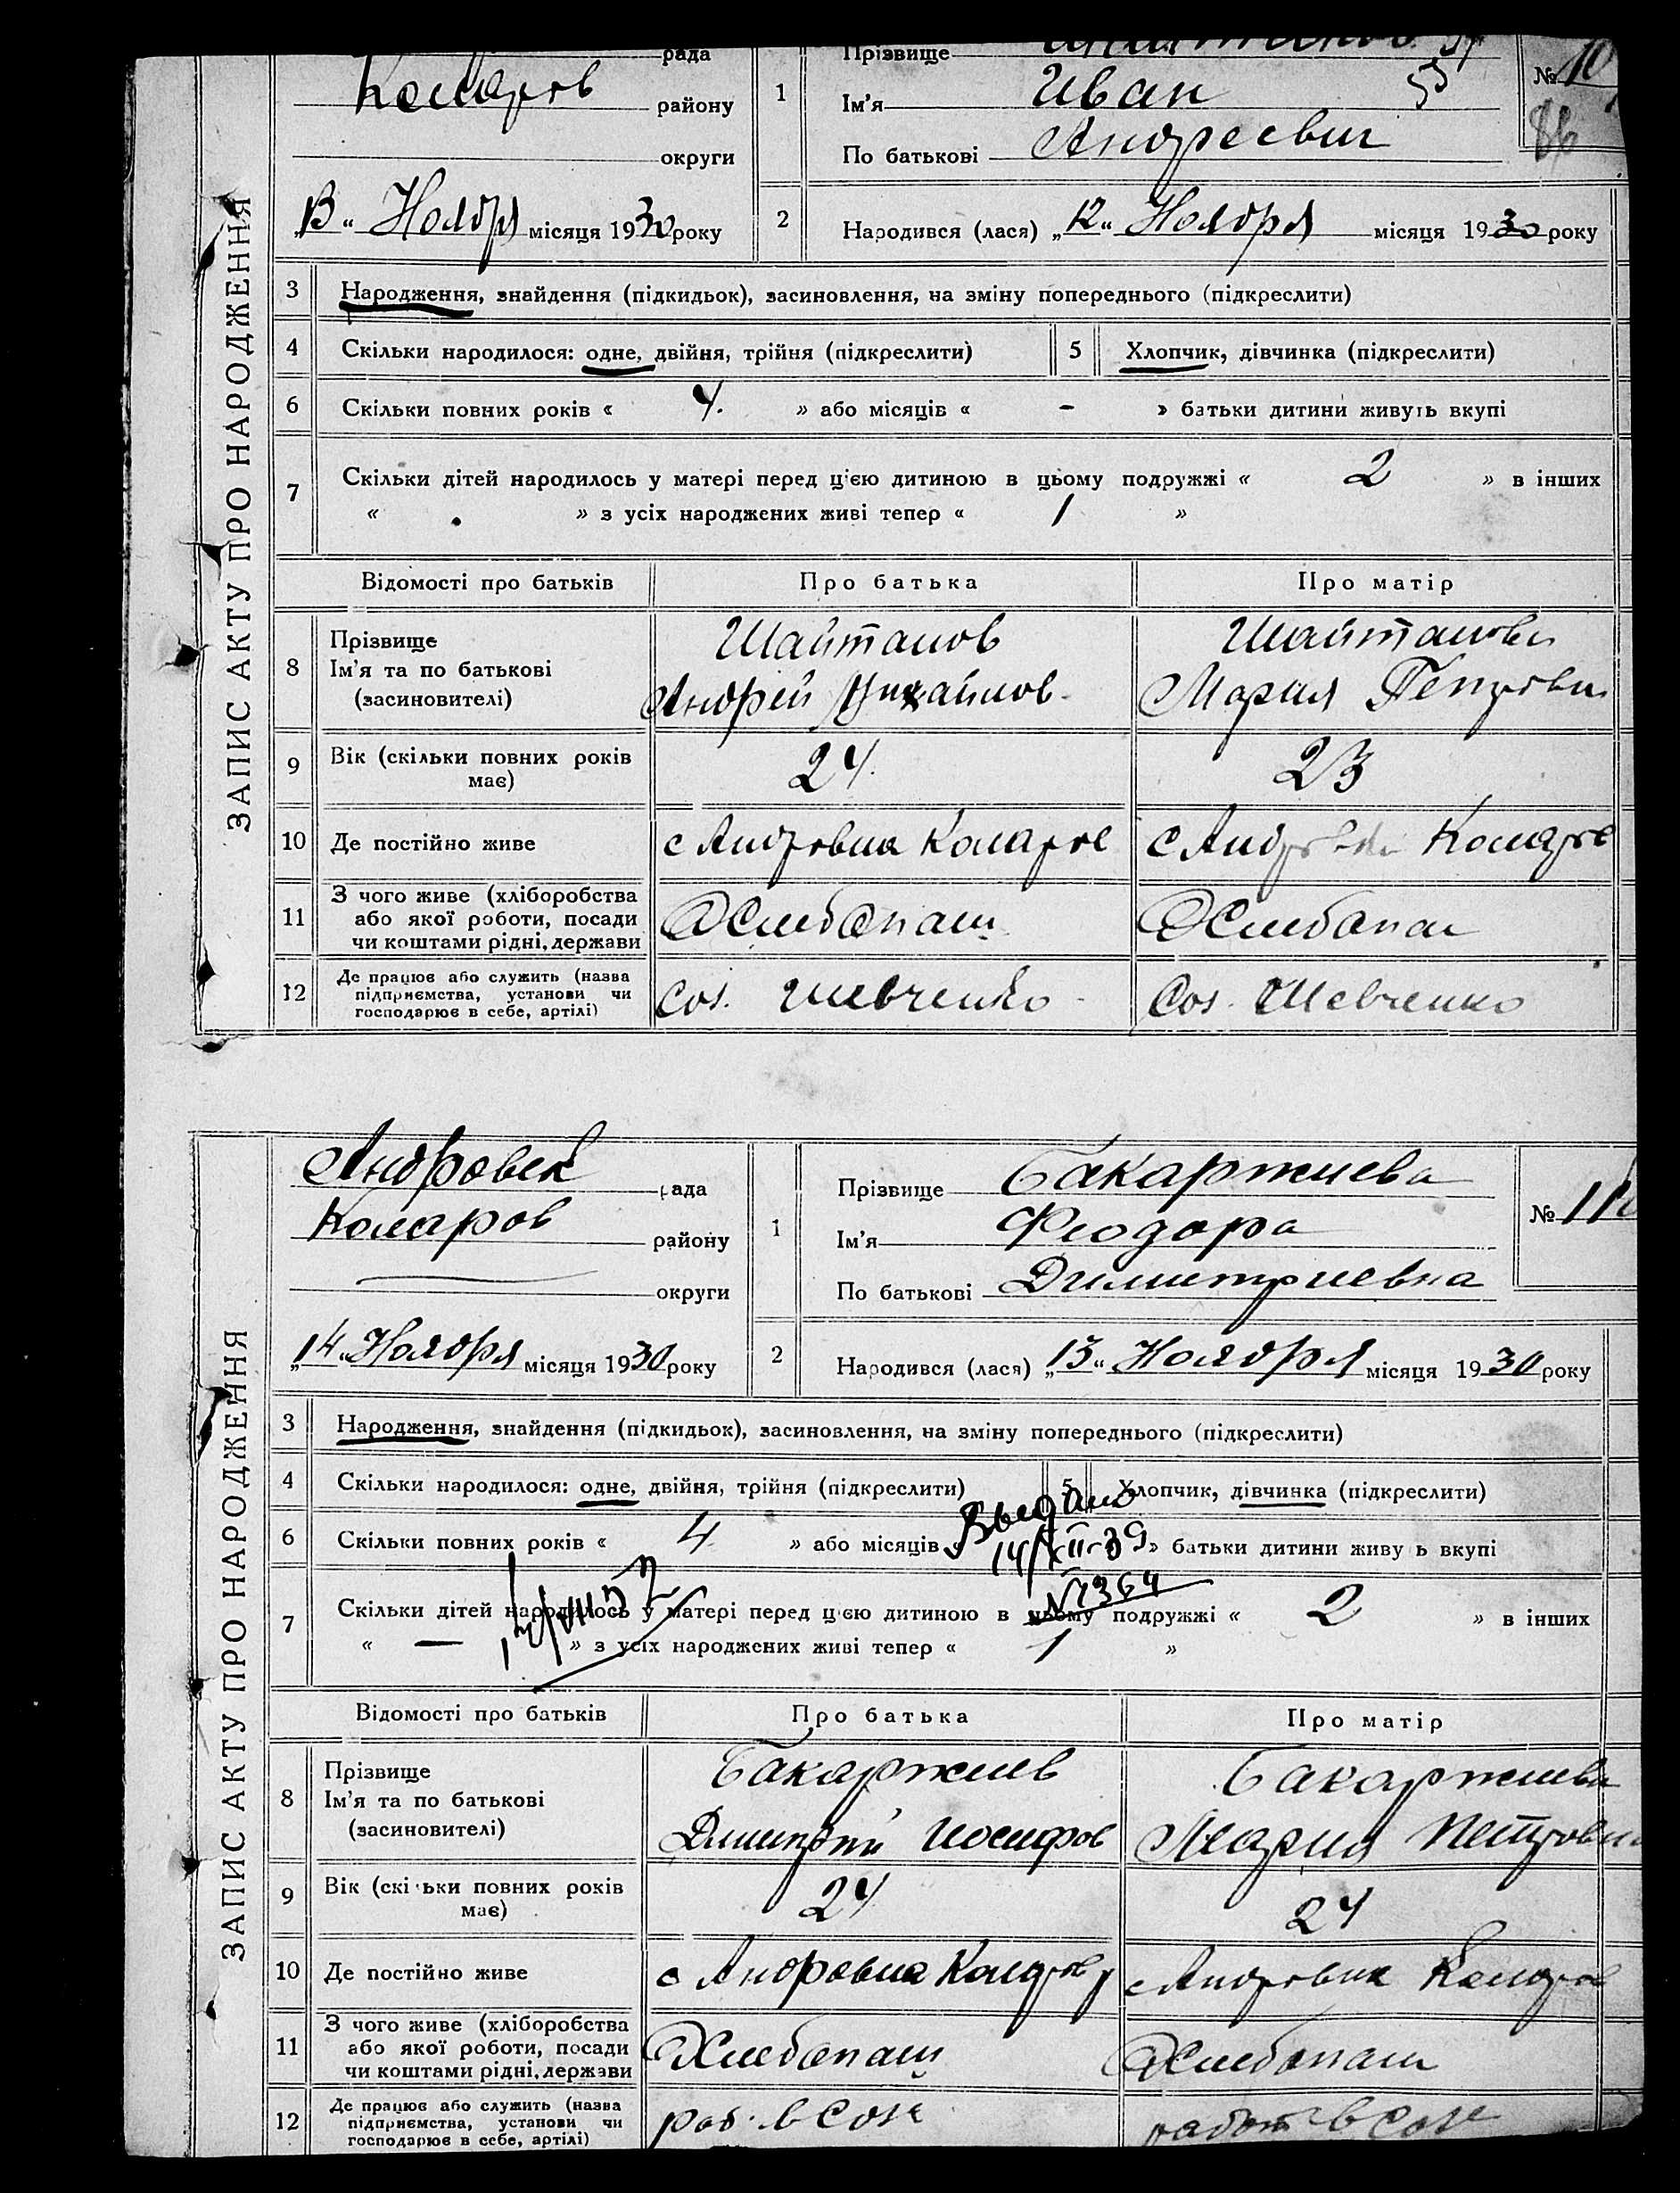 рада
Коларов району
округи
„13“ Ноября місяця 1930 року
1
Прізвище
Ім'я Иван
По батькові Андреевич
№ 10
86
2
Народився (лася) „12“ Ноября місяця 1930 року
ЗАПИС АКТУ ПРО НАРОДЖЕННЯ
3 Народження, знайдення (підкидьок), засиновлення, на зміну попереднього (підкреслити)
4 Скільки народилося: одне, двійня, трійня (підкреслити) 5 Хлопчик, дівчинка (підкреслити)
6 Скільки повних років « 4. » або місяців « - » батьки дитини живуть вкупі
7 Скільки дітей народилось у матері перед цією дитиною в цьому подружжі « 2 » в інших
« . » з усіх народжених живі тепер « 1 »
Відомості про батьків Про батька Про матір
8 Прізвище
Ім'я та по батькові
(засиновителі)
Шайтанов
Андрей Михайлов
Шайтанова
Мария Петровна
9 Вік (скільки повних років
має)
24.
23
10 Де постійно живе с Андровка Коларов с Андровка Коларов
11 З чого живе (хліборобства
або якої роботи, посади
чи коштами рідні, держави
Хлебопаш
Хлебопаш
12 Де працює або служить (назва
підприємства, установи чи
господарює в себе, артілі)
Соз. Шевченко
Соз. Шевченко
Андровск рада
Коларов району
округи
„14“ Ноября місяця 1930 року
1
Прізвище Бакаржиева
Ім'я Феодора
По батькові Димитриевна
№ 11
2
Народився (лася) „13“ Ноября місяця 1930 року
ЗАПИС АКТУ ПРО НАРОДЖЕННЯ
3 Народження, знайдення (підкидьок), засиновлення, на зміну попереднього (підкреслити)
4 Скільки народилося: одне, двійня, трійня (підкреслити) 5 Хлопчик, дівчинка (підкреслити)
Выдано
14/XII-39
№1364
6 Скільки повних років « 4. » або місяців « » батьки дитини живу ь вкупі
7 Скільки дітей народилось у матері перед цією дитиною в цьому подружжі « 2 » в інших
« — » з усіх народжених живі тепер « 1 »
Відомості про батьків Про батька Про матір
8 Прізвище
Ім'я та по батькові
(засиновителі)
Бакаржиев
Димитрий Иосифов
Бакаржиева
Мария Петровна
9 Вік (скі ьки повних років
має)
24
24
10 Де постійно живе с Андровка Коларов с Андровка Коларов
11 З чого живе (хліборобства
або якої роботи, посади
чи коштами рідні, держави
Хлебопаш
Хлебопаш
12 Де працює або служить (назва
підприємства, установи чи
господарює в себе, артілі)
раб. в Созе
работ в Созе